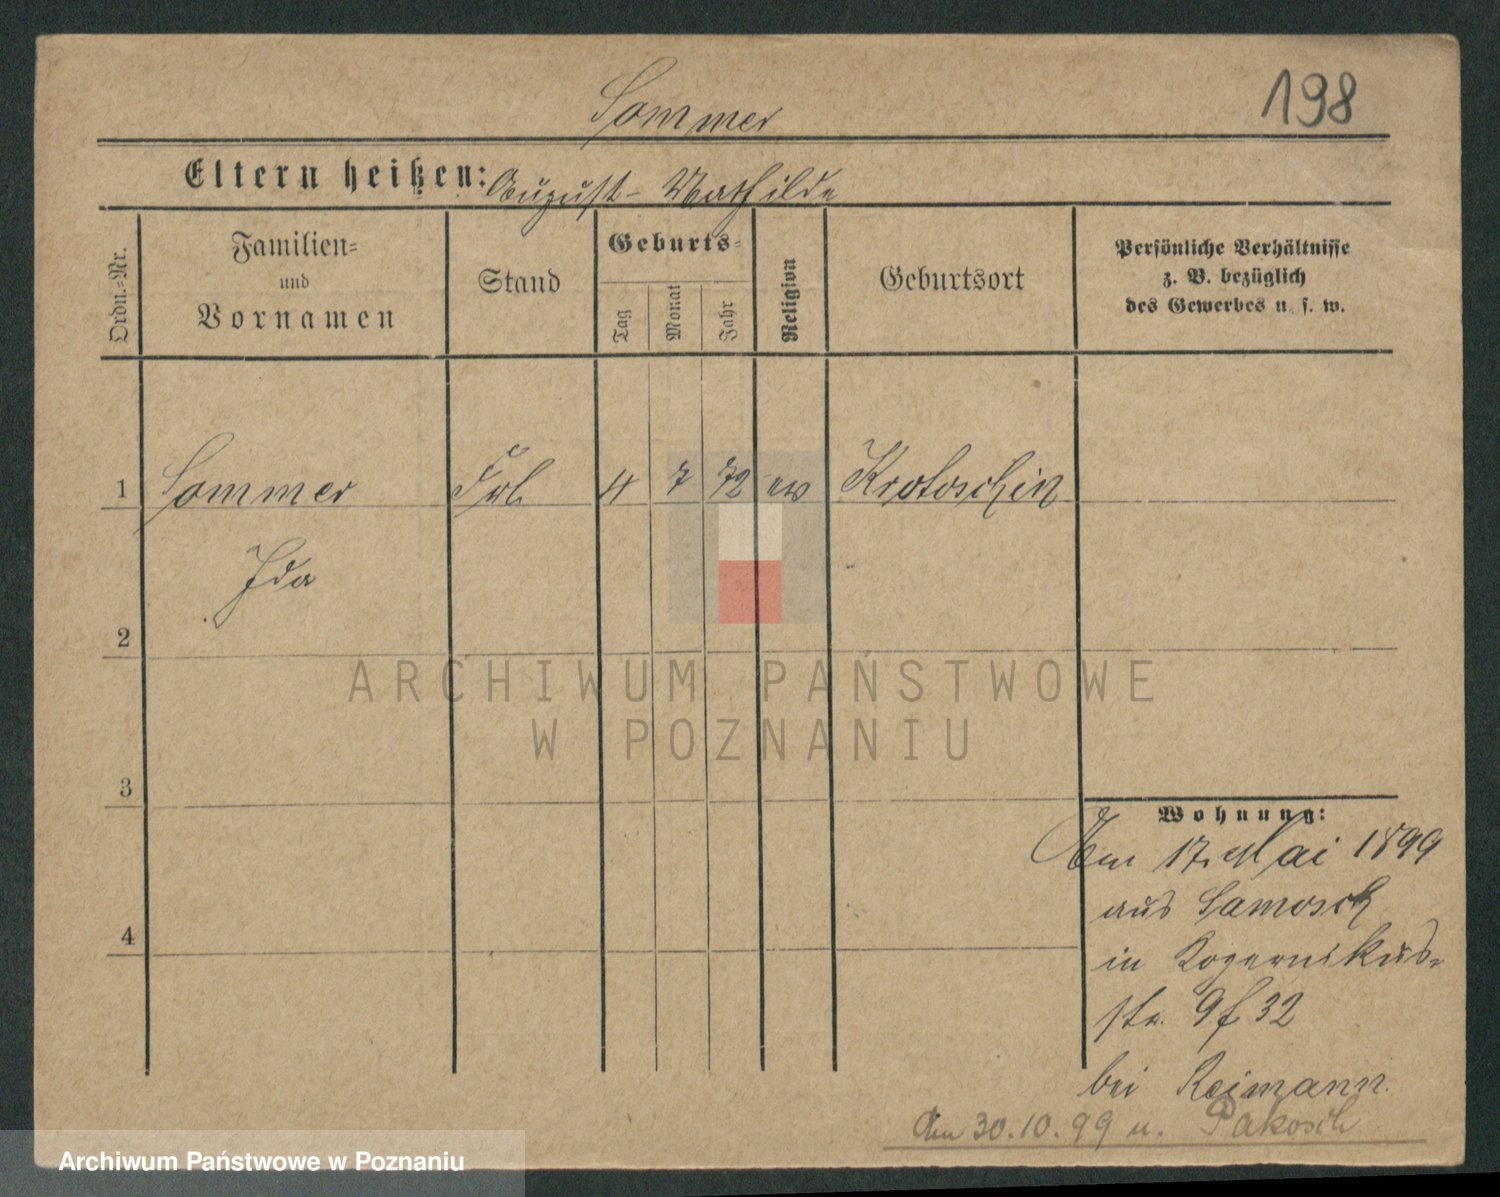 198
Sommer
Eltern heißen: August - Mathilde
Ordn.=Nr.
Familien=
und
Vornamen
Stand
Geburts=
Tag
Monat
Jahr
Religion
Geburtsort
Persönliche Verhältnisse
z. B. bezüglich
des Gewerbes u. s. w.
1 Sommer Frl. 4 7 72 ev Krotoschin
Ida
2
3
4
Wohnung:
Am 17. Mai 1899
aus Samosch
in Kopernikus-
str. 9 f 32
bei Reimann.
Am 30.10.99 n. Pakosch
ARCHIWUM PAŃSTWOWE
W POZNANIU
Archiwum Państwowe w Poznaniu